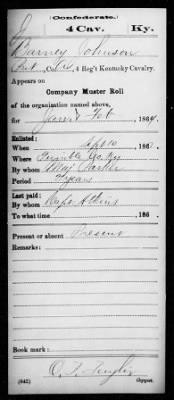 (Confederate.)
J 4 Cav. Ky.
Barney Johnson
Pvt, Co. 4 Reg't Kentucky Cavalry.
Appears on
Company Muster Roll
of the organization named above,
for Jan & Feb, 1864
Enlisted:
When Sept 10, 186
Where Trimble Co. Ky
By whom Maj Parker
Period 3 years
Last paid:
By whom Capt Adkins
To what time , 186 .
Present or absent Present
Remarks:
Book mark:
(642) Copyist.